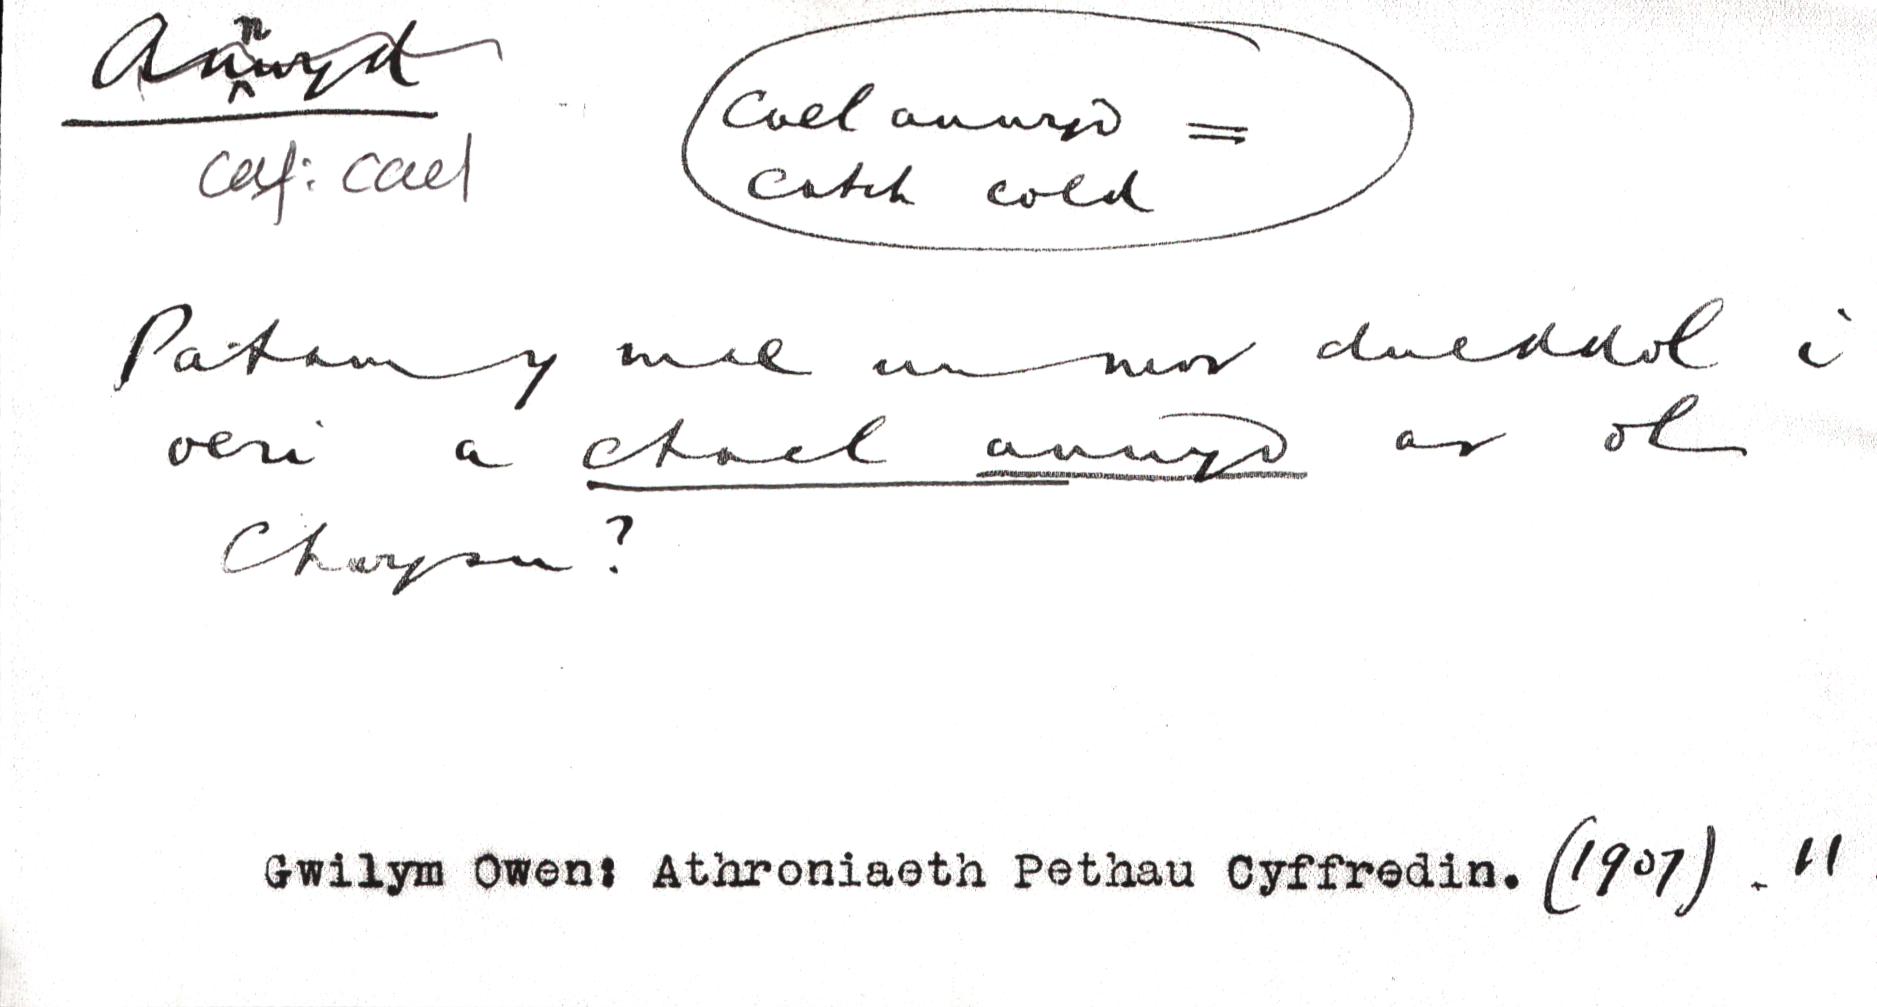 Annwyd
caf: cael
Cael annwyd =
catch cold
Paham y mae un mor dueddol i
oeri a chael annwyd ar ol
Chwysu?
Gwilym Owen: Athroniaeth Pethau Cyffredin. (1907). 11